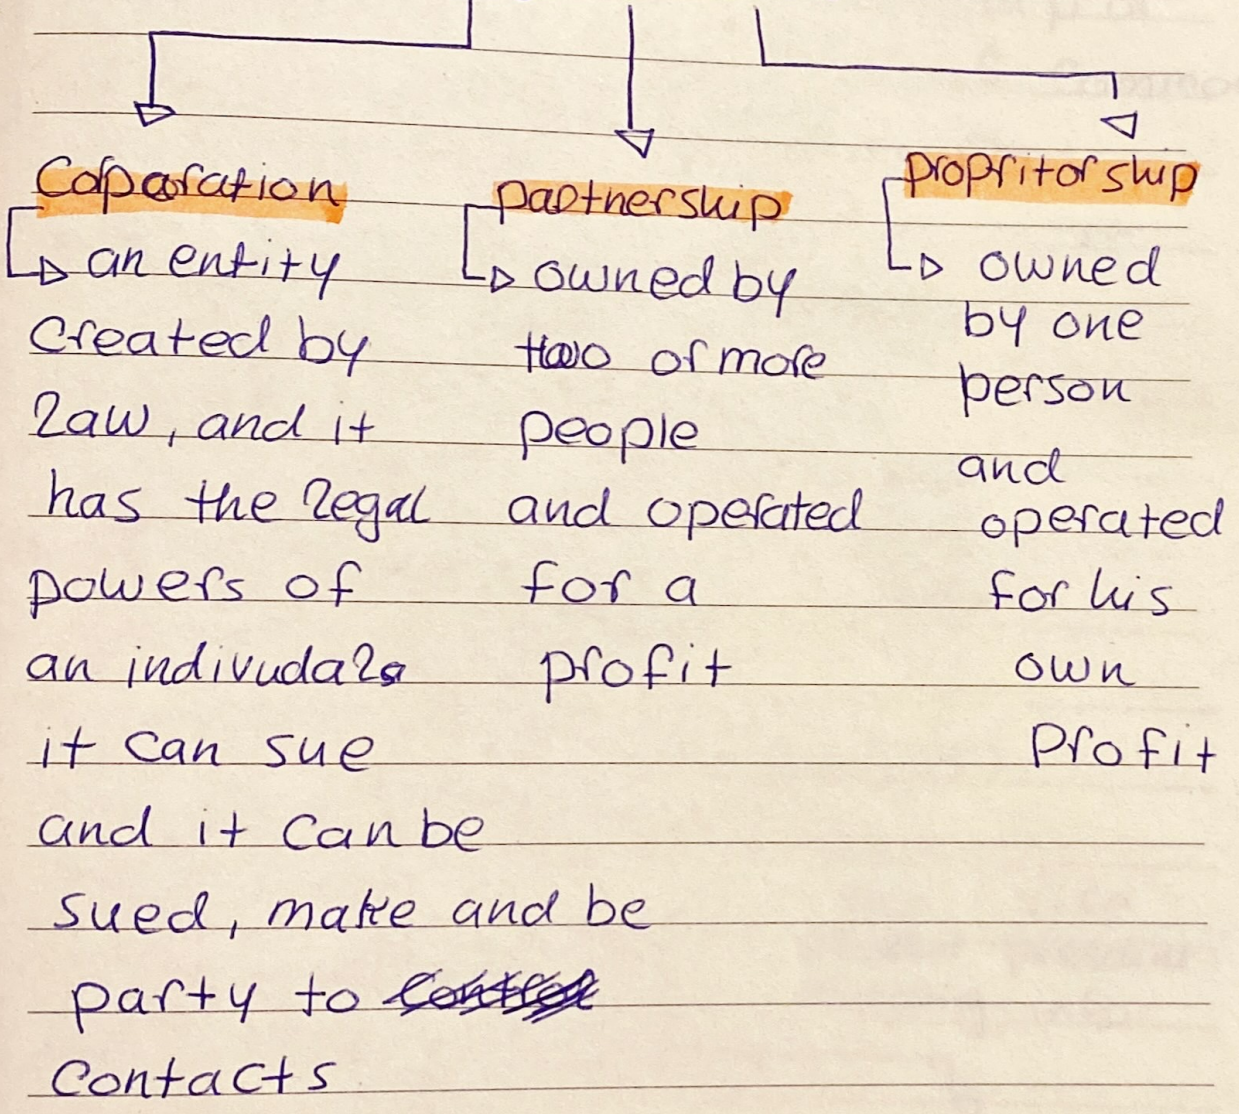 Coparation
an entity
created by
law, and it
has the legal
powers of
an indivudals
it can sue
and it can be
sued, make and be
party to
contacts
partnership
owned by
two or more
people
and operated
for a
profit
propritorship
owned
by one
person
and
operated
for his
own
profit